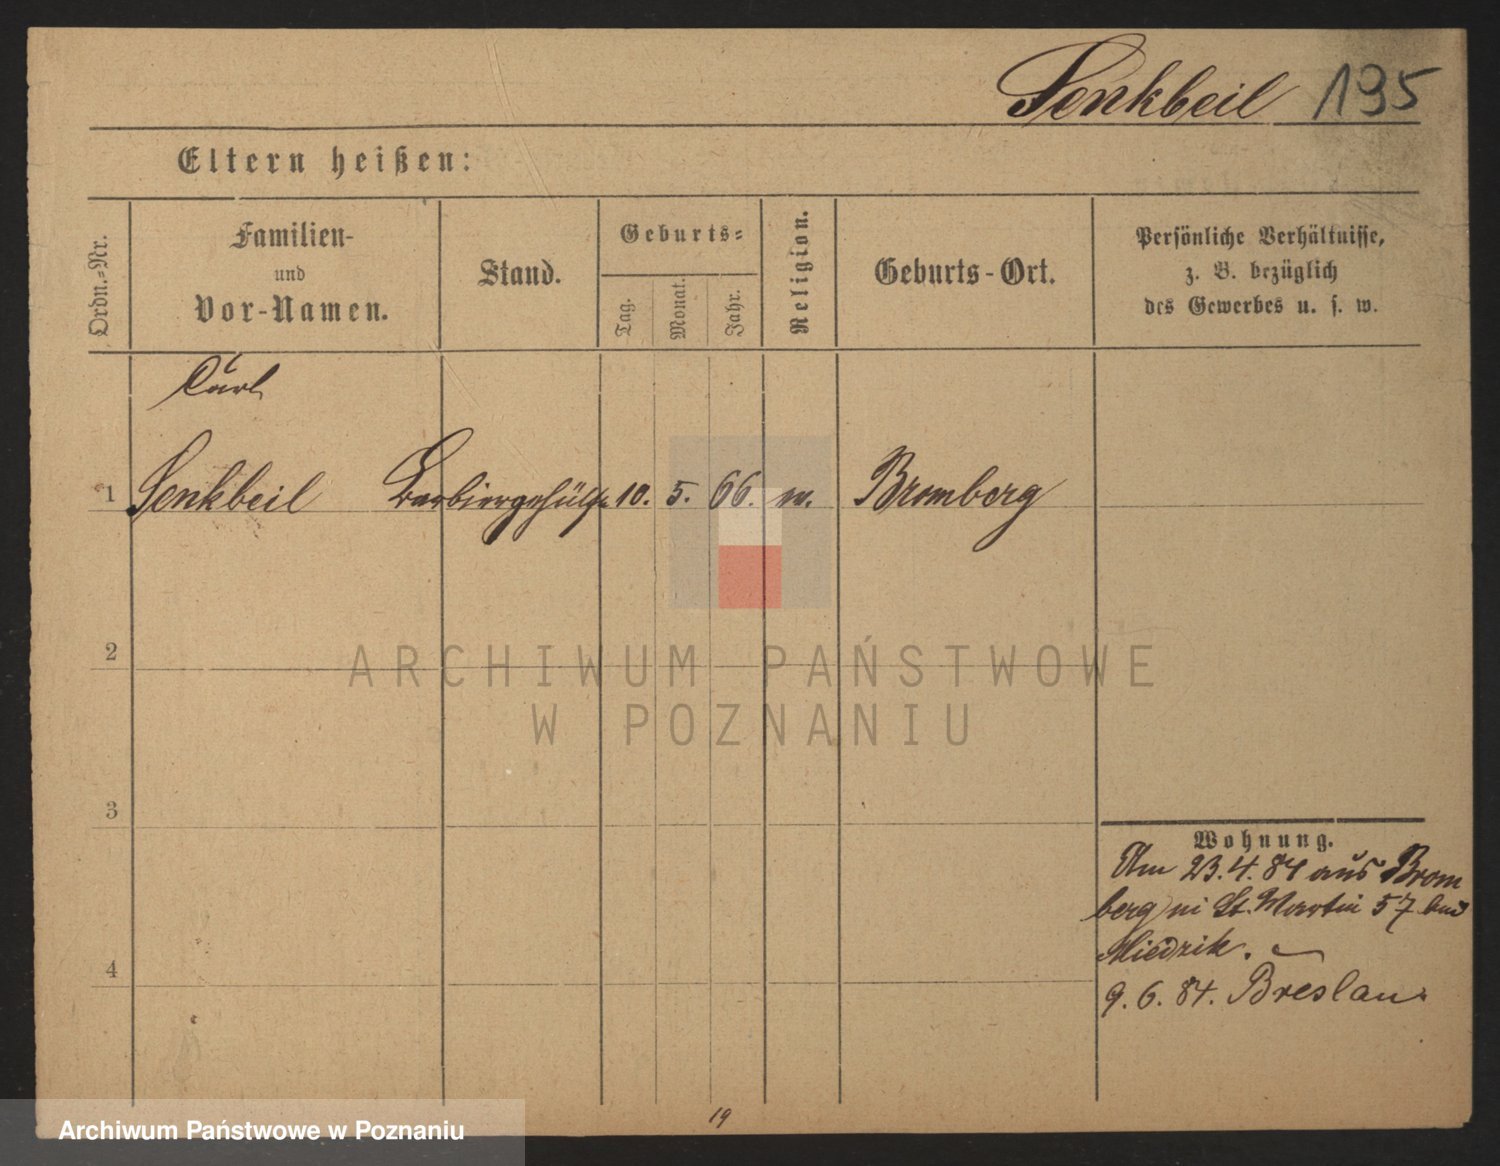 Senkbeil 195
Eltern heißen:
Ordn.-Nr.
Familien-
und
Vor-Namen.
Stand.
Geburts-
Tag.
Monat.
Jahr.
Religion.
Geburts-Ort.
Persönliche Verhältnisse,
z. B. bezüglich
des Gewerbes u. s. w.
Carl
1 Senkbeil Barbiergehülfe 10. 5. 66. Bromberg
2
3
4
Wohnung.
Am 23.4.84 aus Brom
berg in St. Martin 57 bei
9. 6. 84. Breslau.
19
ARCHIWUM PAŃSTWOWE
W POZNANIU
Archiwum Państwowe w Poznaniu